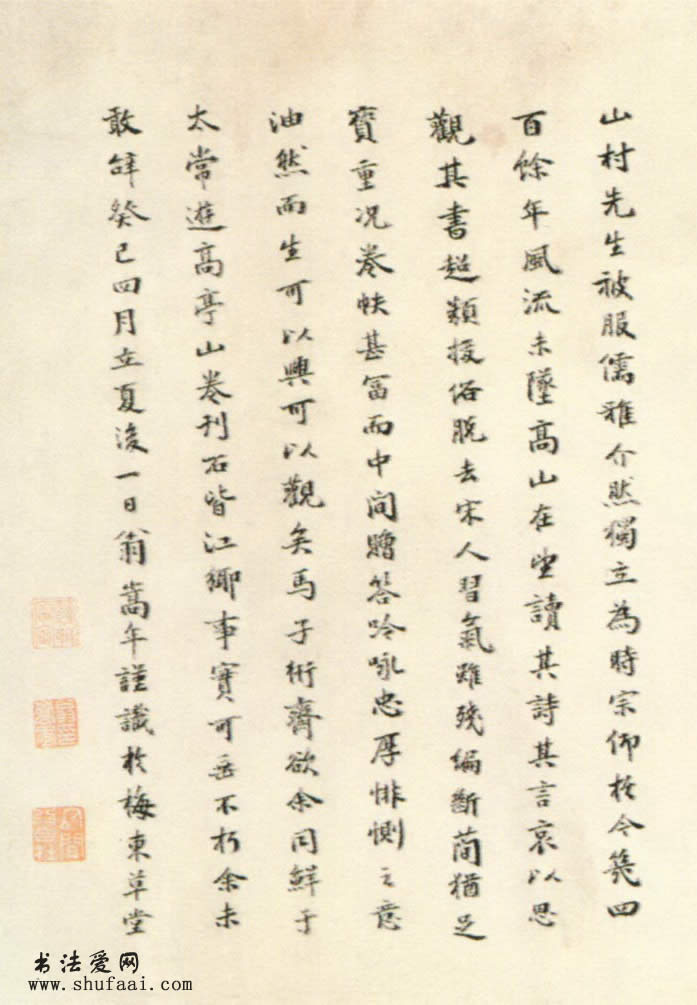 山村先生被服儒雅介然獨立為時宗仰於今幾四
百餘年風流未墜高山在望讀其詩其言哀以思
觀其書超類拔俗脫去宋人習氣雖殘編斷簡猶足
寶重况卷帙甚富而中間贈答吟咏忠厚悱惻之意
油然而生可以興可以觀矣馬子衎齋欲余同鮮于
太常遊高亭山卷刊石皆江鄉事實可垂不朽余未
敢辞癸巳四月立夏後一日翁嵩年謹識於梅東草堂
书法爱网
www.shufaai.com